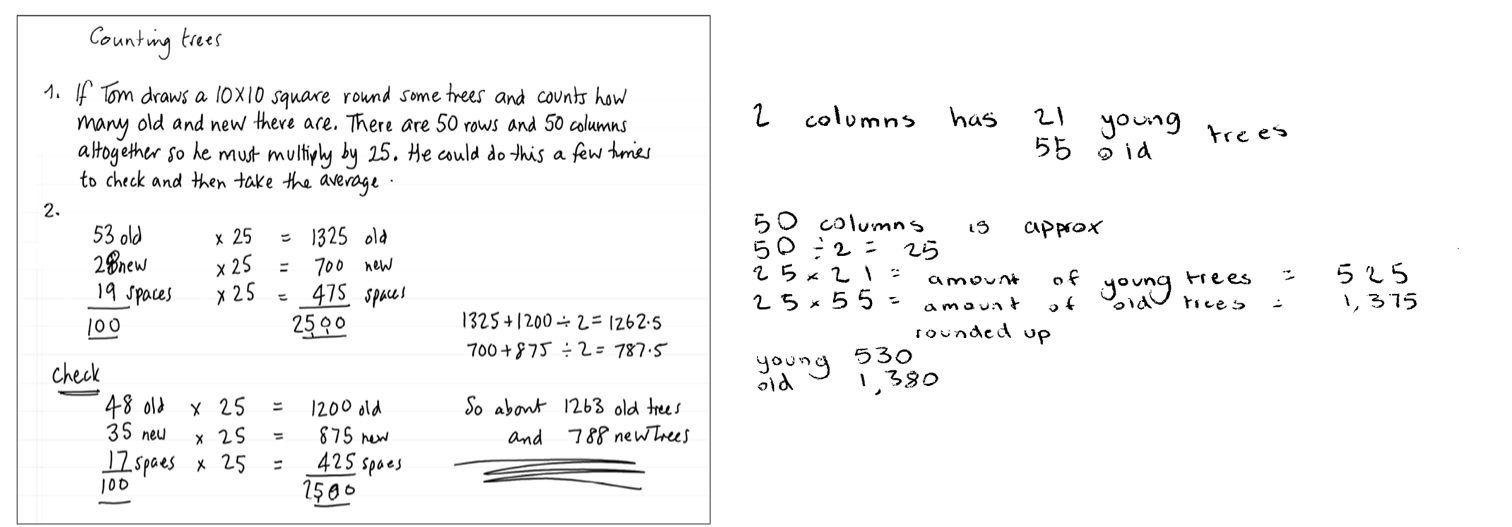 Counting trees
1. If Tom draws a 10X10 square round some trees and counts how
many old and new there are. There are 50 rows and 50 columns
altogether so he must multiply by 25. He could do this a few times
to check and then take the average.
2.
53 old x 25 = 1325 old
28 new x 25 = 700 new
19 spaces x 25 = 475 spaces
100 2500
1325+1200 ÷ 2 = 1262.5
700+875 ÷ 2 = 787.5
Check
48 old x 25 = 1200 old
35 new x 25 = 875 new
17 spaes x 25 = 425 spaes
100 2500
So about 1263 old trees
and 788 new Trees
2 columns has 21 young trees
55 old
50 columns is approx
50 ÷ 2 = 25
25 x 21 = amount of young trees = 525
25 x 55 = amount of old trees = 1,375
rounded up
young 530
old 1,380